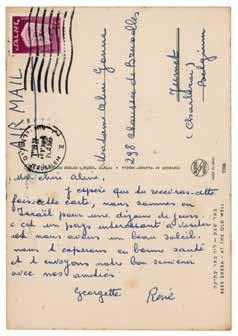 AIR MAIL
Madame Aline
298 chaussée de Bruxelles
Jumet
(Charleroi)
Belgium
Ma chère Aline,
J'espère que tu recevras cette
fois-cette carte, nous sommes en
Israël pour une dizaine de jours
c'est un pays intéressant à visiter
et nous avons un beau soleil.
nous t'espérons en bonne santé
et t'envoyons notre bon souvenir
avec nos amitiés
Georgette René
BEER SHEBA - AT THE OLD WELL
JERUSALEM